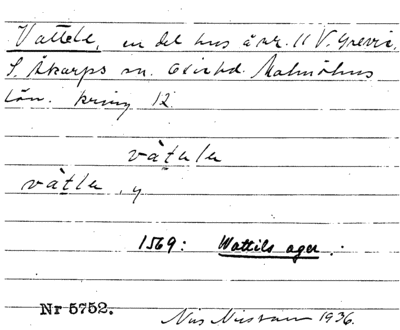 Vattele, en del hus å nr. 11 V. Grevie,
S. Åkarps sn. Oxie hd. Malmöhus
län. kring 12.
vàtələ
vàtlə, y
1569: Wattils ager.
Nr 5752.
Nils 1936.